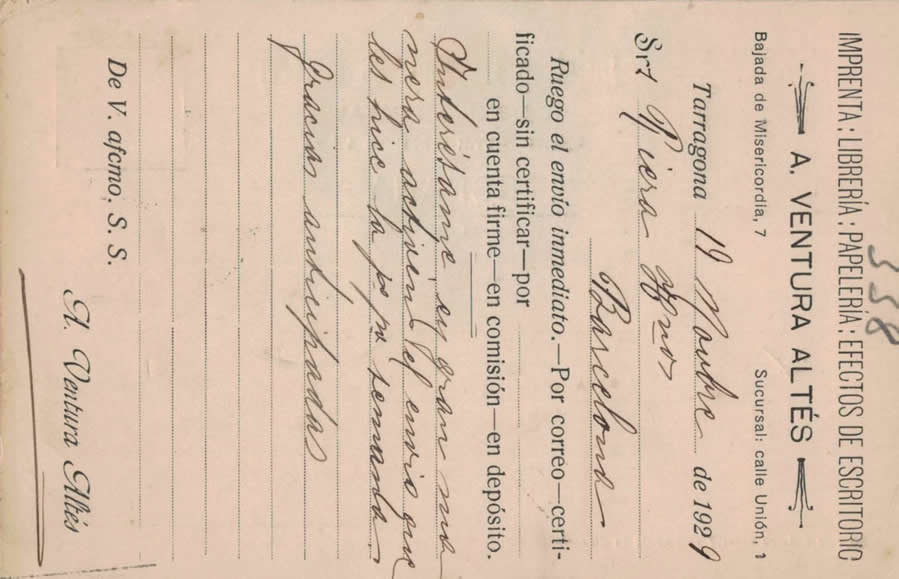 558
IMPRENTA : LIBRERÍA : PAPELERÍA : EFECTOS DE ESCRITORIO
A. VENTURA ALTÉS
Bajada de Misericordia, 7 Sucursal: calle Unión, 1
Tarragona 19 Novbre de 1929
Srs Riera Hnos
Barcelona
Ruego el envío inmediato.—Por correo—certi-
ficado—sin certificar—por
en cuenta firme—en comisión—en depósito.
Interésame en gran ma
nera activen el envio que
les hice la pa. pa. semana.
Gracias anticipadas
De V. afcmo. S. S.
A. Ventura Altés